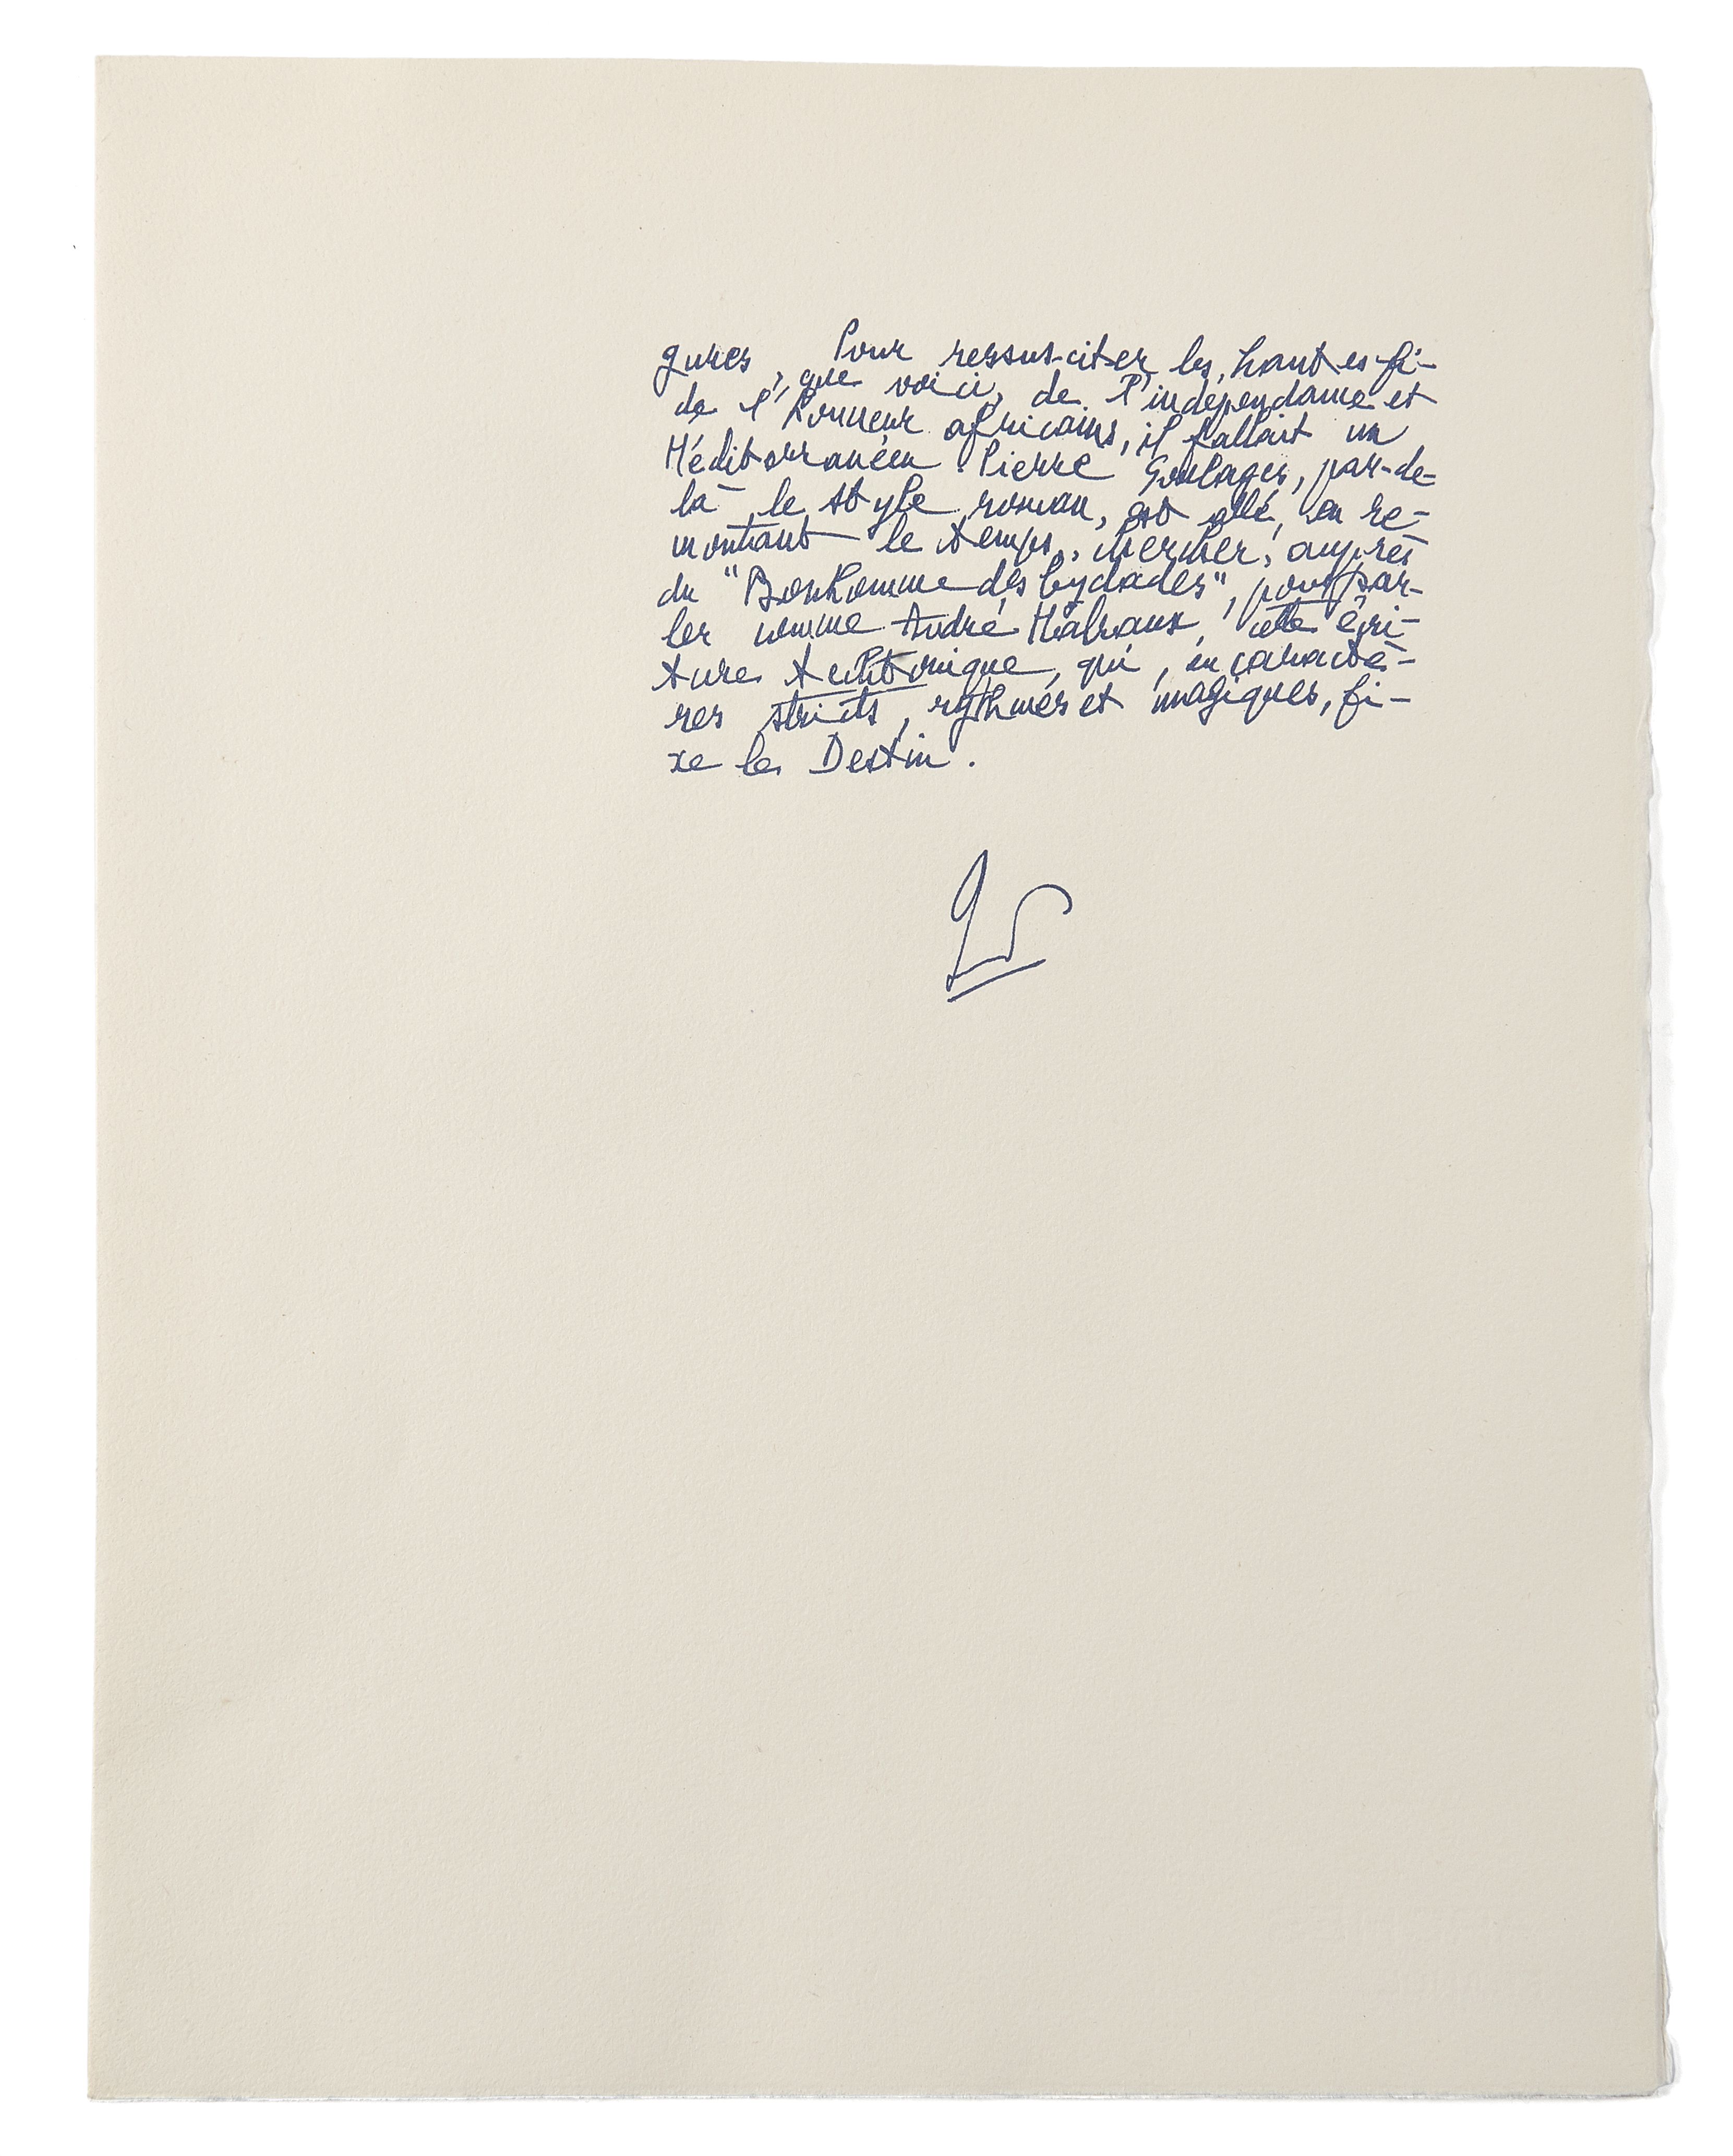 Pour ressusciter les hautes fi-
gures, que voici, de l'indépendance et
de l'honneur africains, il fallait un
Méditerranéen. Pierre Soulages, par-de-
là le style roman, est allé, en re-
montant le temps, chercher, auprès
du "Bonhomme des Cyclades", pour par-
ler comme André Malraux, cette écri-
ture tectonique, qui, en caractè-
res stricts, rythmés et magiques, fi-
xe le Destin.